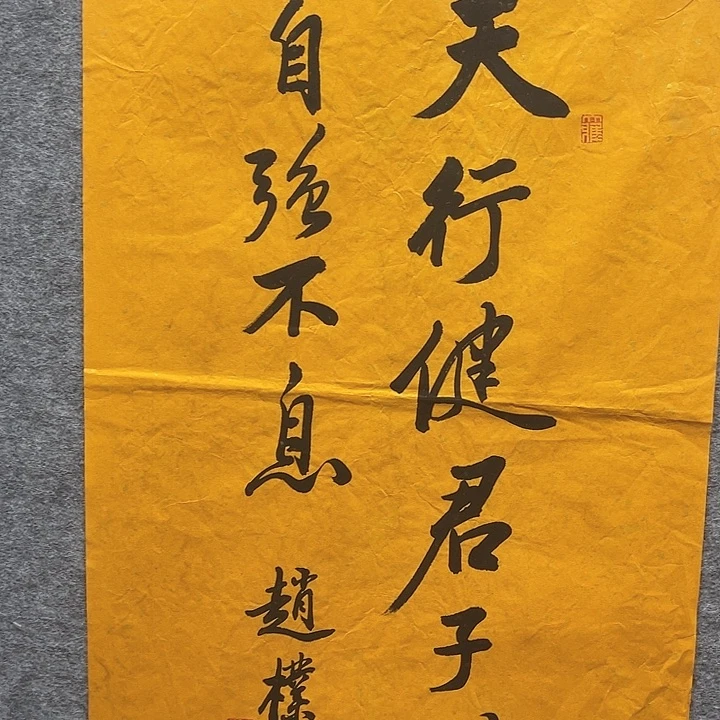 天行健君子
自强不息
趙樸